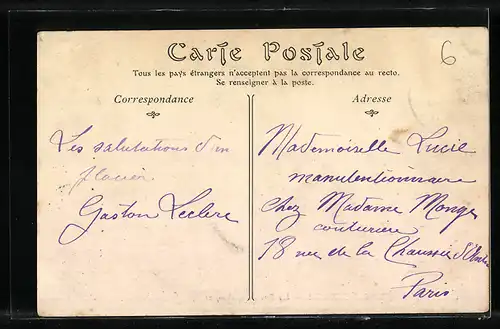 6
Carte Postale
Tous les pays étrangers n'acceptent pas la correspondance au recto.
Se renseigner à la poste.
Correspondance
Les salutations d'un
Gaston Leclerc
Adresse
Mademoiselle Lucie
manutentionnaire
chez Madame Monge
couturière
18 rue de la Chaussée d'Antin
Paris